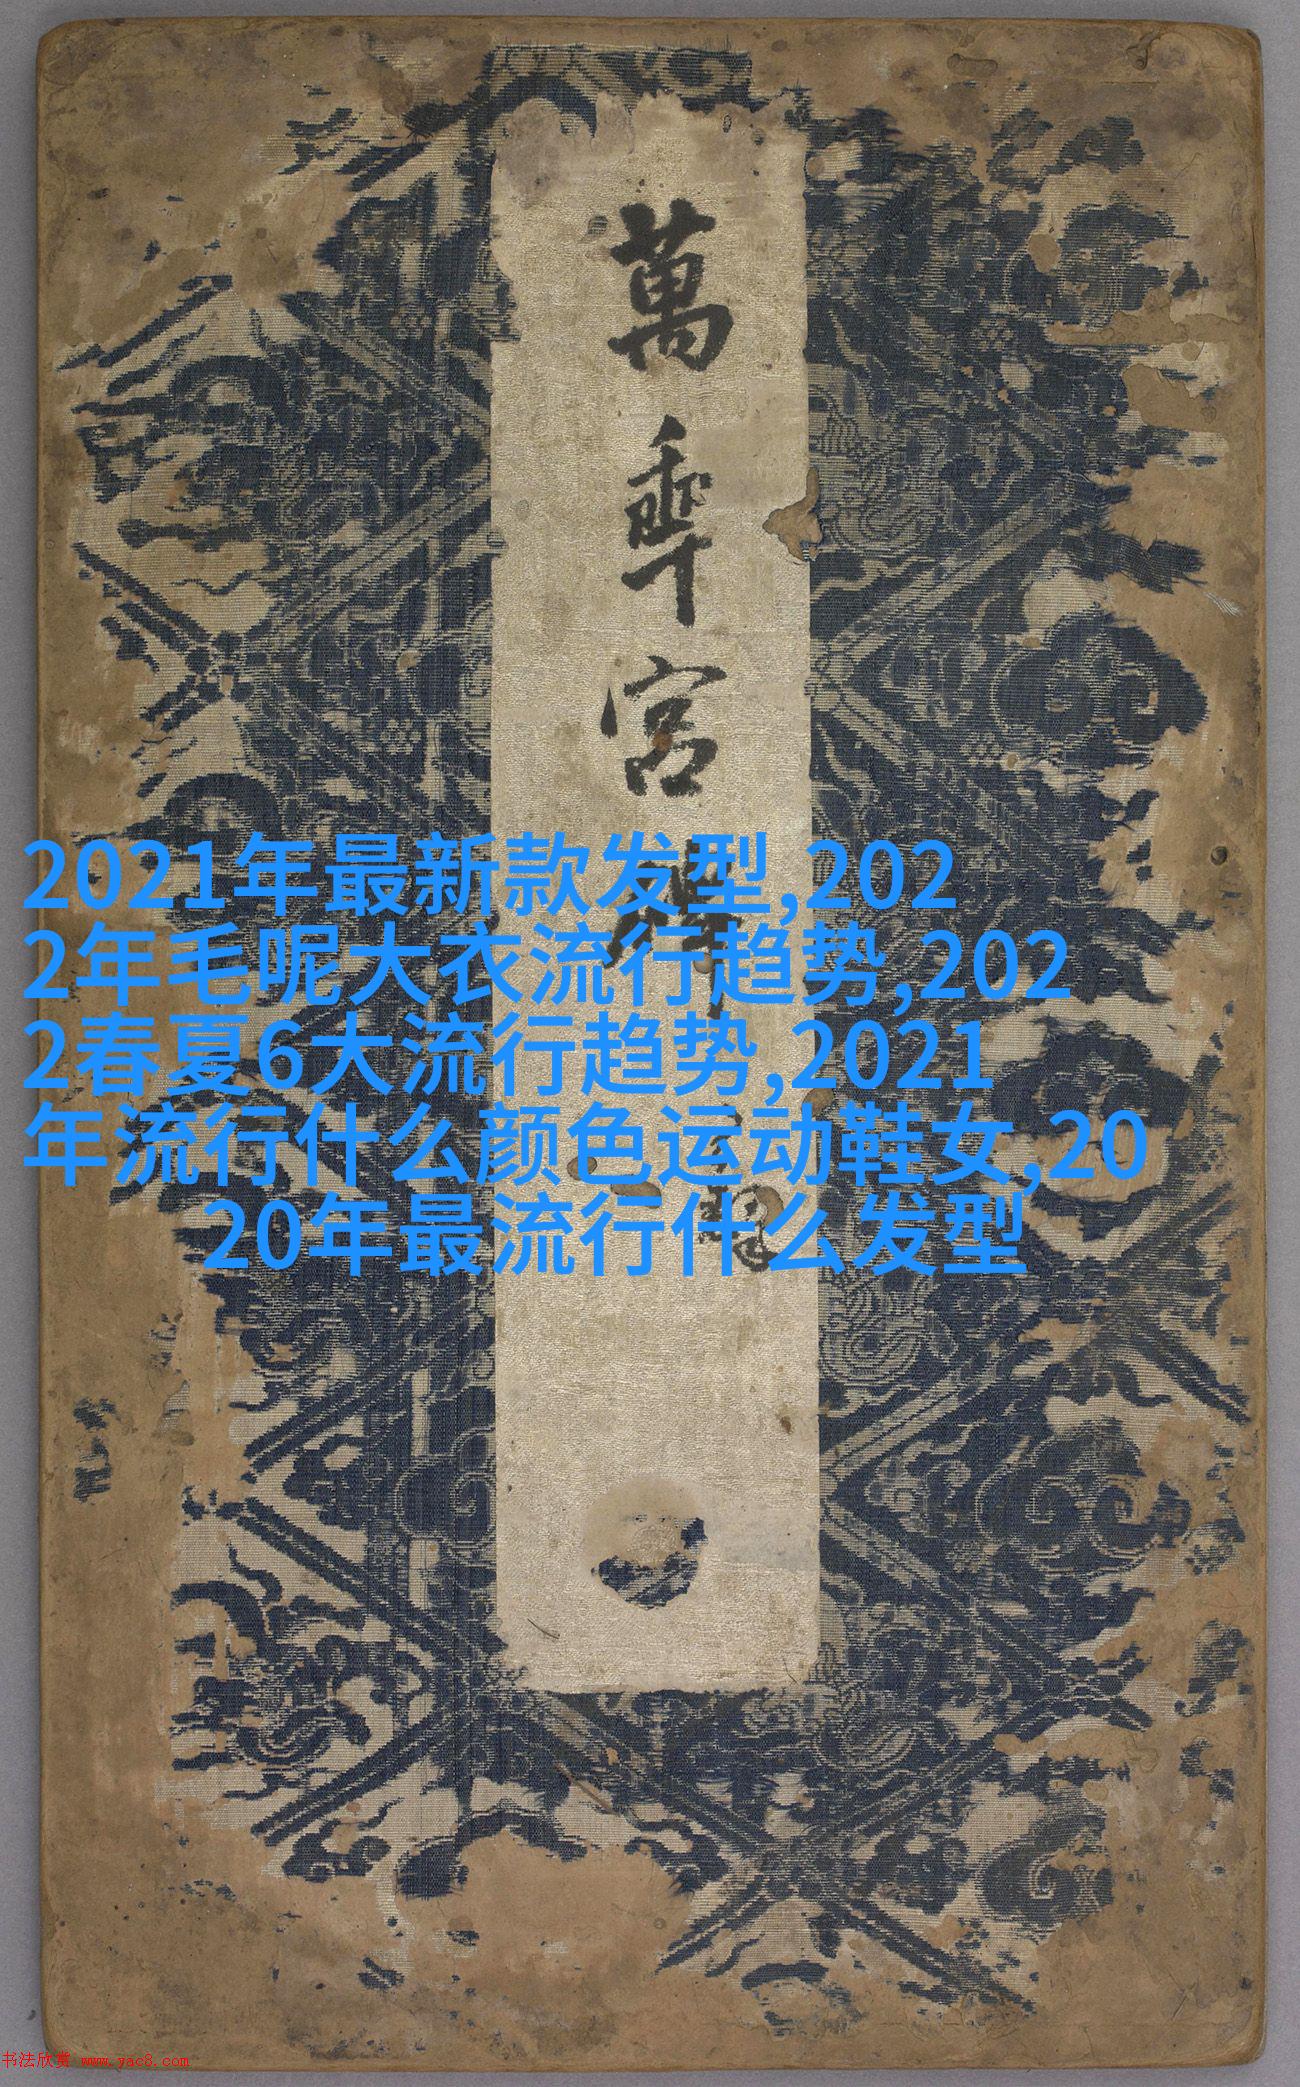 萬乘宮
2021年最新款发型,202
2年毛呢大衣流行趋势,202
2春夏6大流行趋势,2021
年流行什么颜色运动鞋女,20
20年最流行什么发型
书法欣赏 www.yac8.com